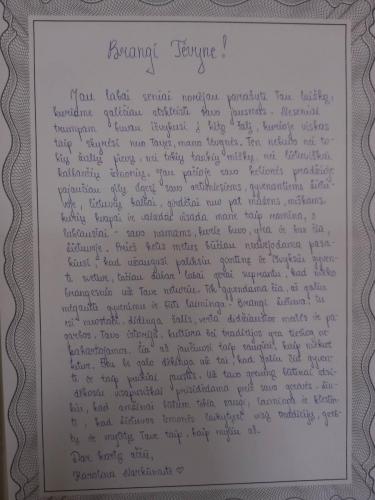 Brangi Tėvyne!
Jau labai seniai norėjau parašyti Tau laišką,
kuriame galėčiau atskleisti savo jausmus. Neseniai
trumpam buvau išvykusi į kitą šalį, kurioje viskas
taip skyrėsi nuo Tavęs, mano tėvynės. Ten nebuvo nei to-
kių žalių pievų, nei tokių tankių miškų, nei lietuviškai
kalbančių žmonių. Jau pačioje savo kelionės pradžioje
pajaučiau ilgesį savo artimiesiems, gyvenantiems Lietu-
voje, lietuvių kalbai, girdėtai nuo pat mažens, miškams,
kurių kvapai ir vaizdai visada mane taip ramina, o
labiausiai - savo namams, kurie buvo, yra ir bus čia,
Lietuvoje. Prieš kelis metus būčiau nedvejodama pasa-
kiusi, kad užaugusi paliksiu gimtinę ir išvyksiu gyven-
ti svetur, tačiau dabar labai gerai suprantu, kad nieko
brangesnio už Tave neturiu. Tik gyvendama čia, aš galiu
mėgautis gyvenimu ir būti laiminga. Brangi Lietuva! Tu
esi nuostabi, didinga šalis, verta didžiausios meilės ir pa-
garbos. Tavo istorija, kultūra bei tradicijos yra tiesiog ne-
pakartojamos. Čia aš jaučiuosi taip saugiai, kaip niekur
kitur. Esu be galo dėkinga už tai, kad galiu čia gyven-
ti ir taip puikiai jaustis. Už tavo gerumą būtinai atsi-
dėkosiu visapusiškai prisidėdama prie savo gerovės. Sie-
kiu, kad amžinai būtum tokia saugi, laiminga ir klestin-
ti, kad Lietuvos žmonės laikytųsi visų tradicijų, gerb-
tų ir mylėtų Tave taip, kaip myliu aš.
Dar kartą ačiū,
Karolina Narkūnaitė